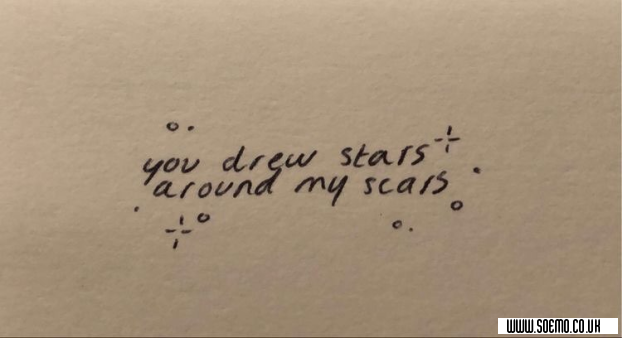 you drew stars
around my scars
WWW.SOEMO.CO.UK